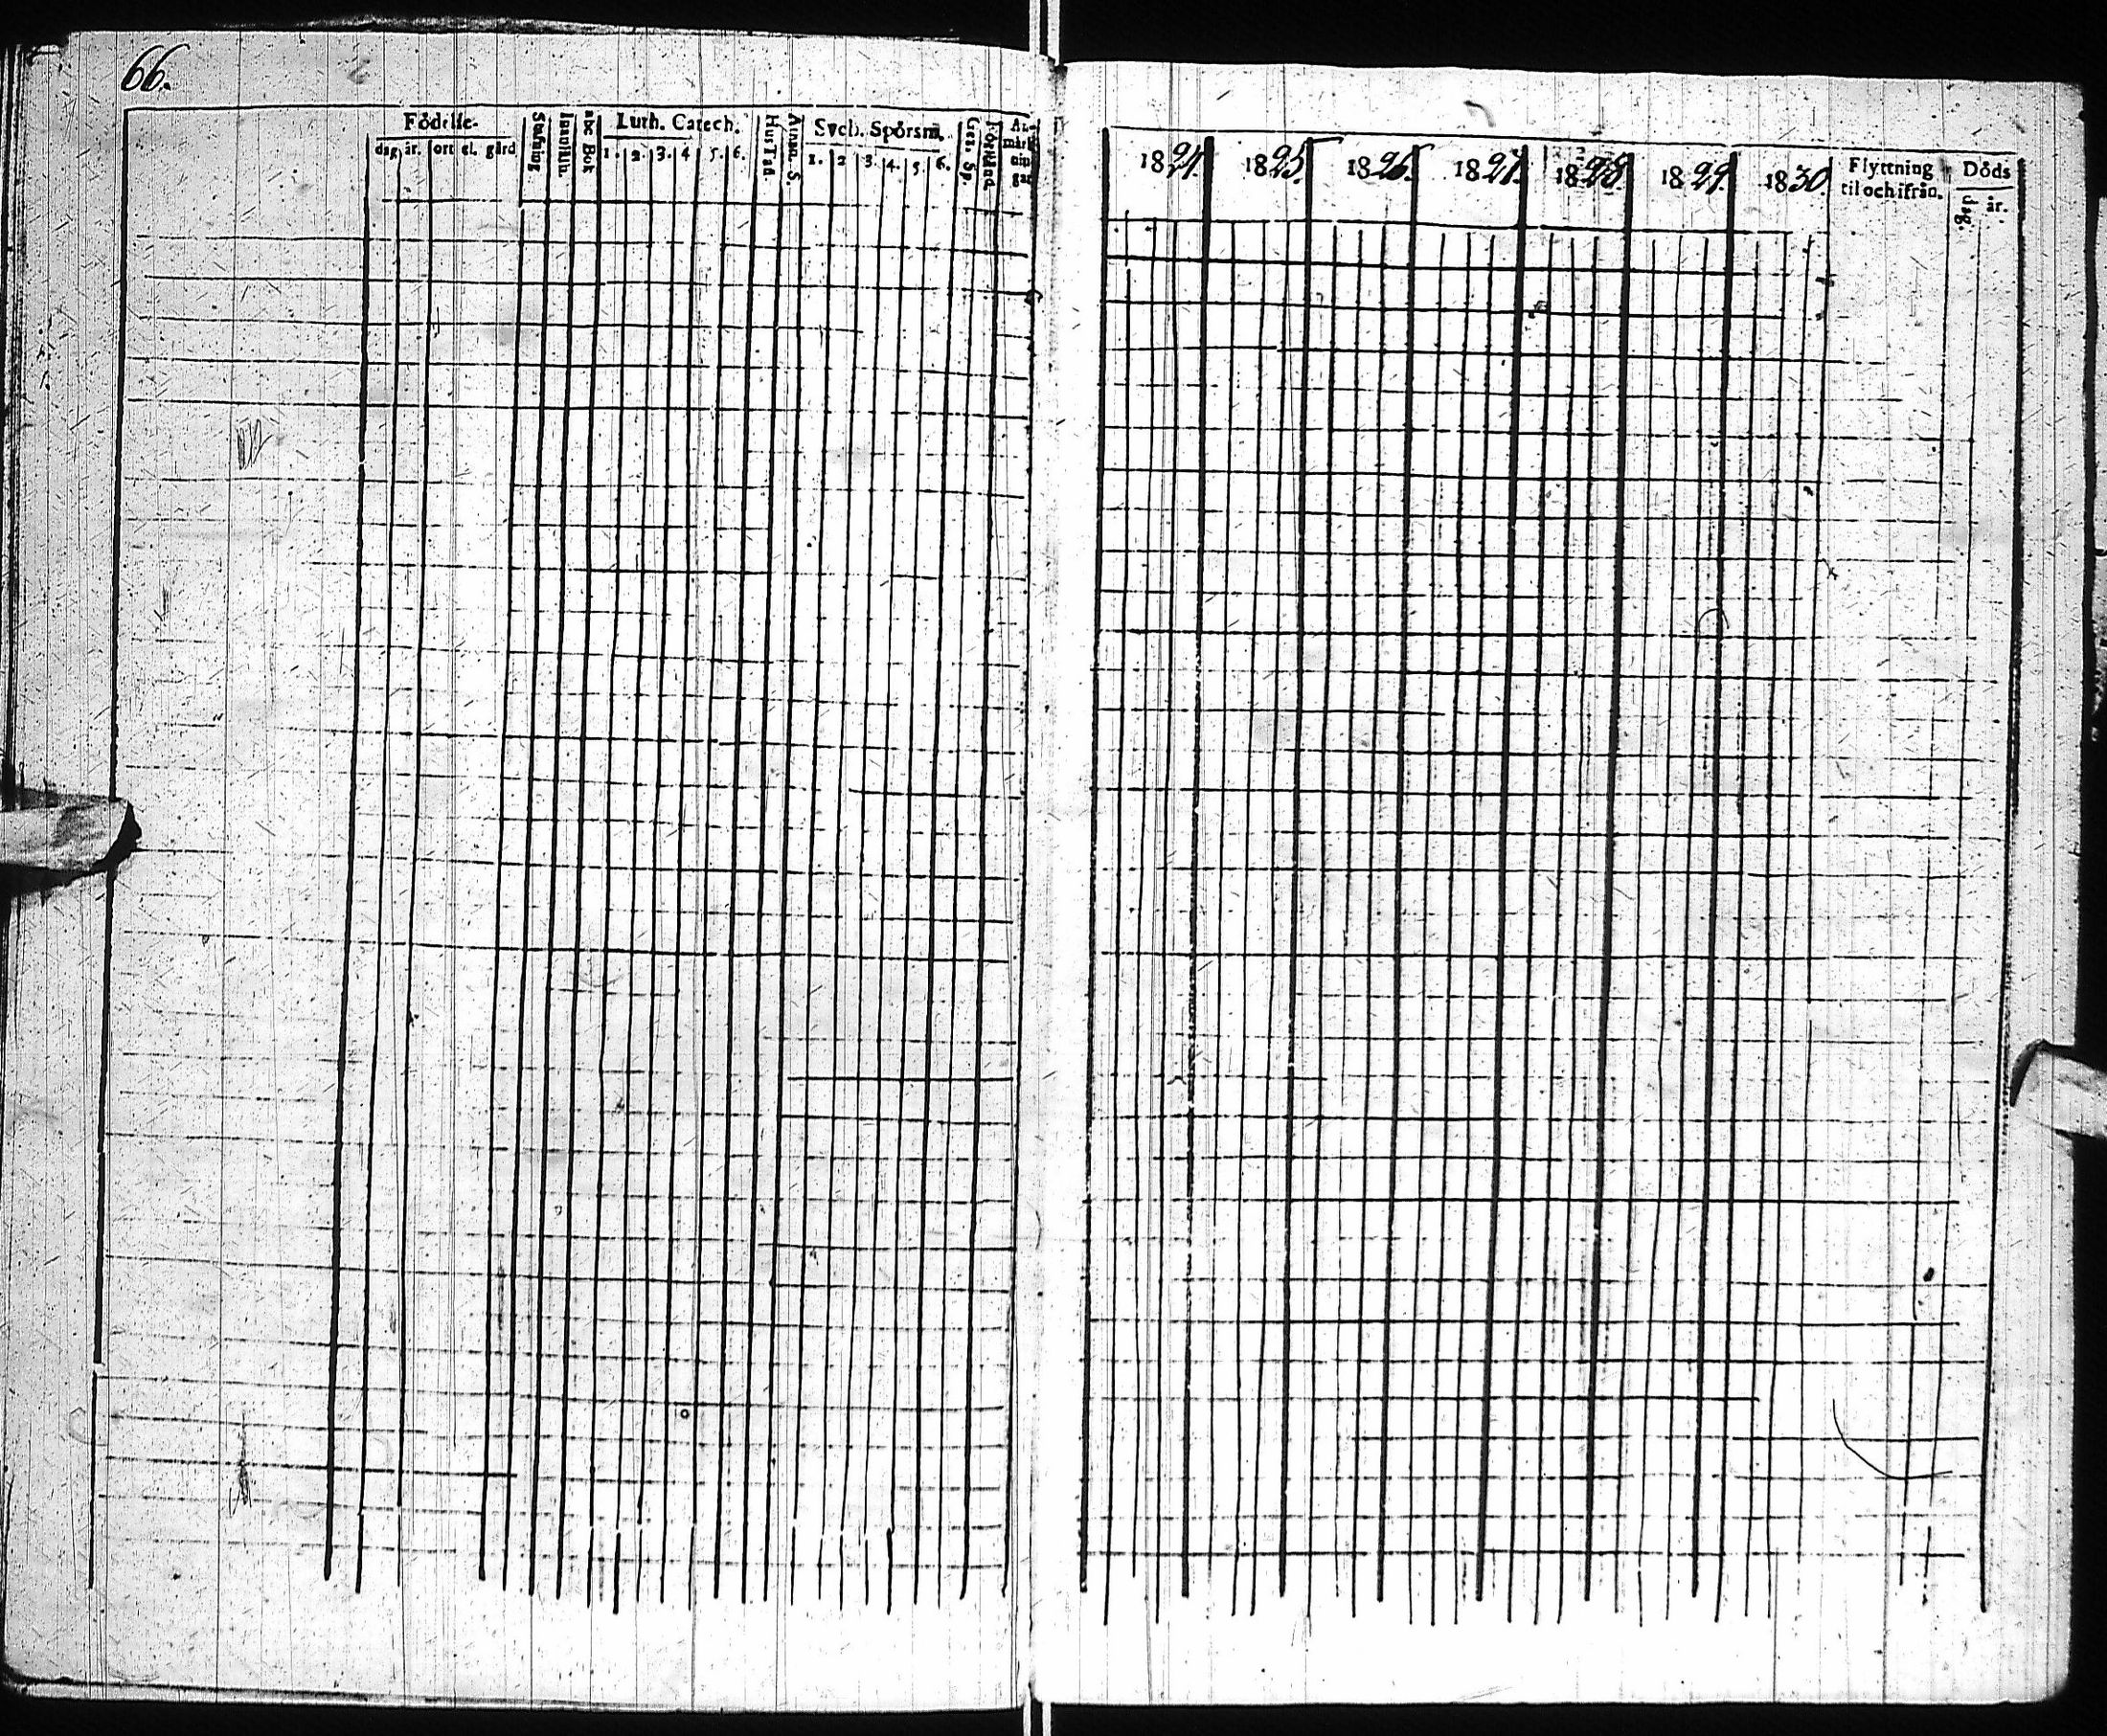 66.
Födelse-
dag år. ort el. gård
Stafning
Innanläsn.
abc Bok
Luth. Catech.
1. 2. 3. 4 5. 6.
Hus Tafl.
Athan. S.
Sveb. Spörsm.
1. 2 3. 4. 5. 6.
Gez. Sp.
Förstånd.
An-
märk
nin-
gar
1824. 1825. 1826. 1827. 1828. 1829. 1830.
Flyttning
til och ifrån.
Döds
dag. år.